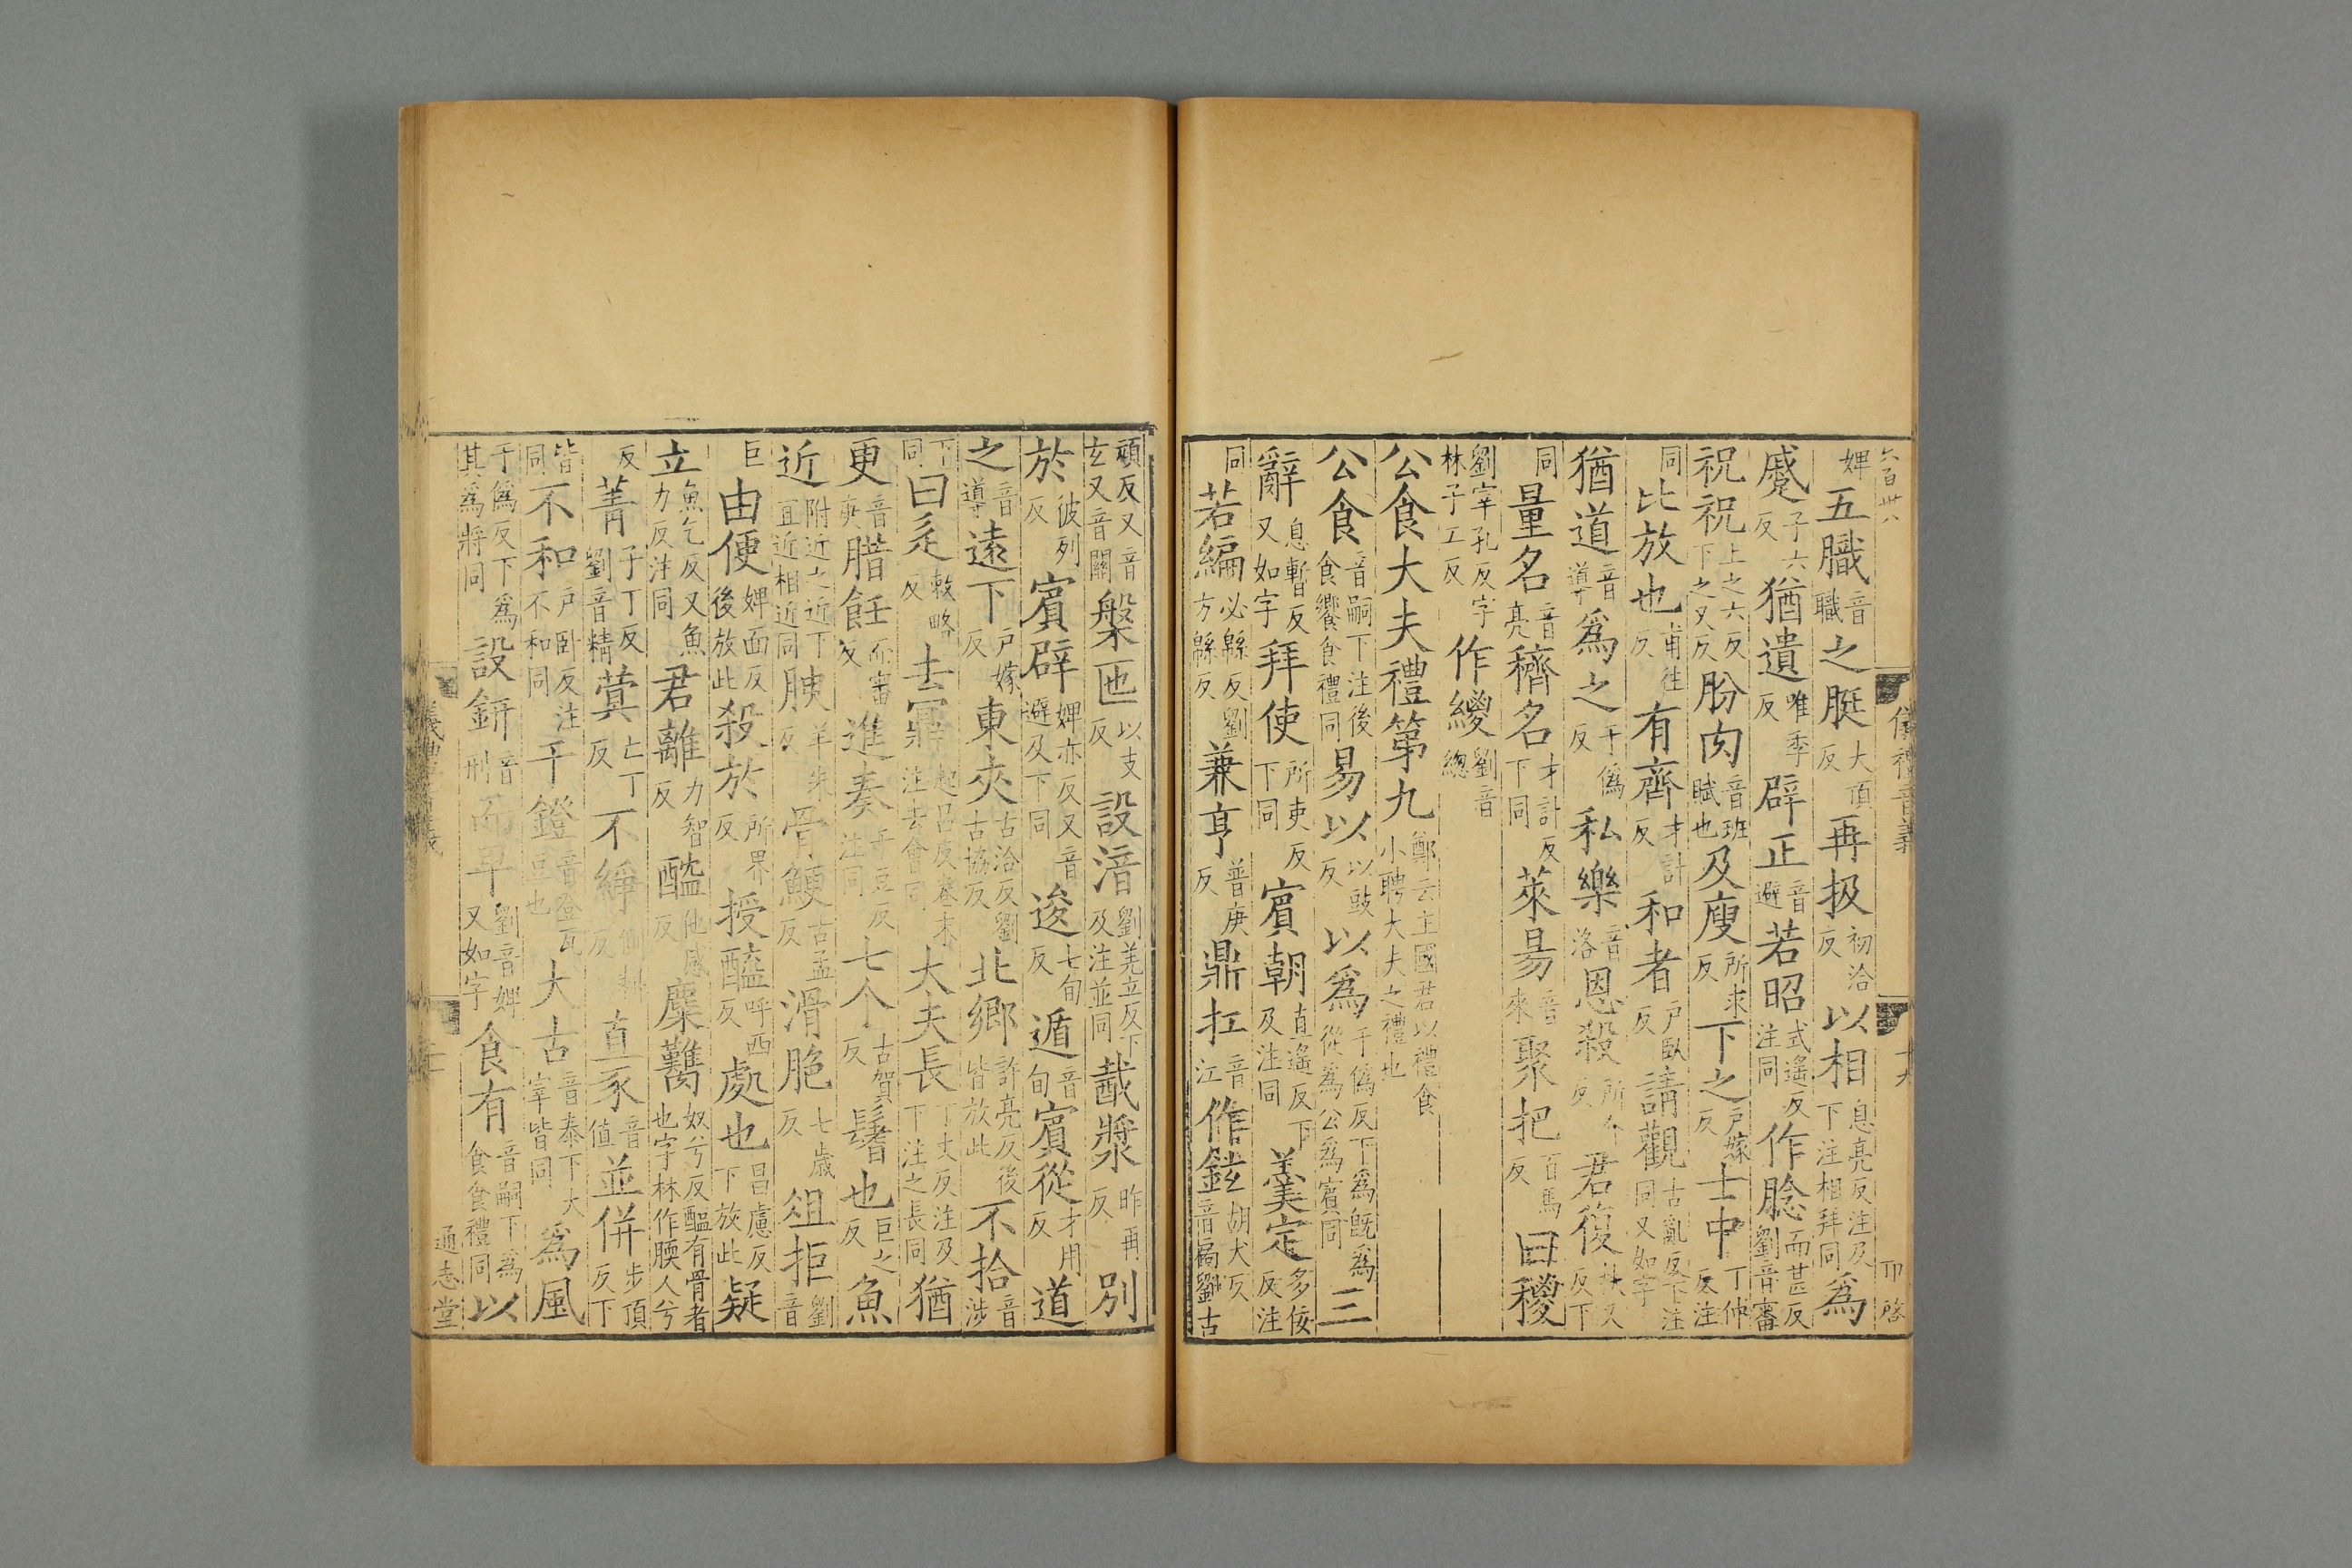 六百卅八 儀禮音義 十九 卭啓
婢五職音職之脡大頂反再扱初洽反以相息亮反注及下注相拜同爲
蹙子六反猶遺唯季反辟正音避若昭式遙反注同作腍而甚反劉音審
祝祝上之六反下之又反肦肉音班賦也及廋所求反下之戶嫁反士中丁仲反注
同比放也甫往反有齊才計反和者戶臥反請觀古亂反下注同又如字
猶道音導爲之于僞反私樂音洛恩殺所介反君復扶又反下
同量名音亮穧名才計反下同萊昜音來聚把百馬反曰稯
劉宰孔反字林子工反作緵劉音總
公食大夫禮第九鄭云主國君以禮食小聘大夫之禮也
公食音嗣下注後食饗食禮同易以以豉反以爲于僞反下爲旣爲從爲公爲賓同三
辭息暫反又如字拜使所吏反下同賓朝直遙反下及注同羹定多佞反注
同若編必緜反劉方緜反兼亨普庚反鼎扛音江作鉉胡犬反音扃劉古
頑反又音玄又音關槃匜以支反設湆劉羌立反下及注並同酨漿昨再反別
於彼列反賓辟婢亦反又音避及下同逡七旬反遁音旬賓從才用反道
之音導遠下戶嫁反東夾古洽反劉古協反北鄉許亮反後皆放此不拾音涉
下同曰辵敕略反去鼏起呂反卷末注去會同大夫長丁丈反注及下注之長同猶
更音庚腊飪而審反進奏千豆反注同七个古賀反鬐也巨之反魚
近附近之近下直近相近同腴羊朱反骨鯁古孟反滑脆七歲反俎拒劉音
巨由便婢面反後放此殺於所界反授醯呼西反處也昌慮反下放此疑
立魚乞反又魚力反注同君離力智反醓他感反麋臡奴兮反醢有骨者也字林作腝人兮
反菁子丁反劉音精蓂亡丁反不綪側耕反直豕音值並併步頂反下
皆同不和戶臥反注不和同于鐙音登瓦豆也大古音泰下大宰皆同爲風
于僞反下爲其爲將同設鉶音刑而卑劉音婢又如字食有音嗣下爲食食禮同以
通志堂